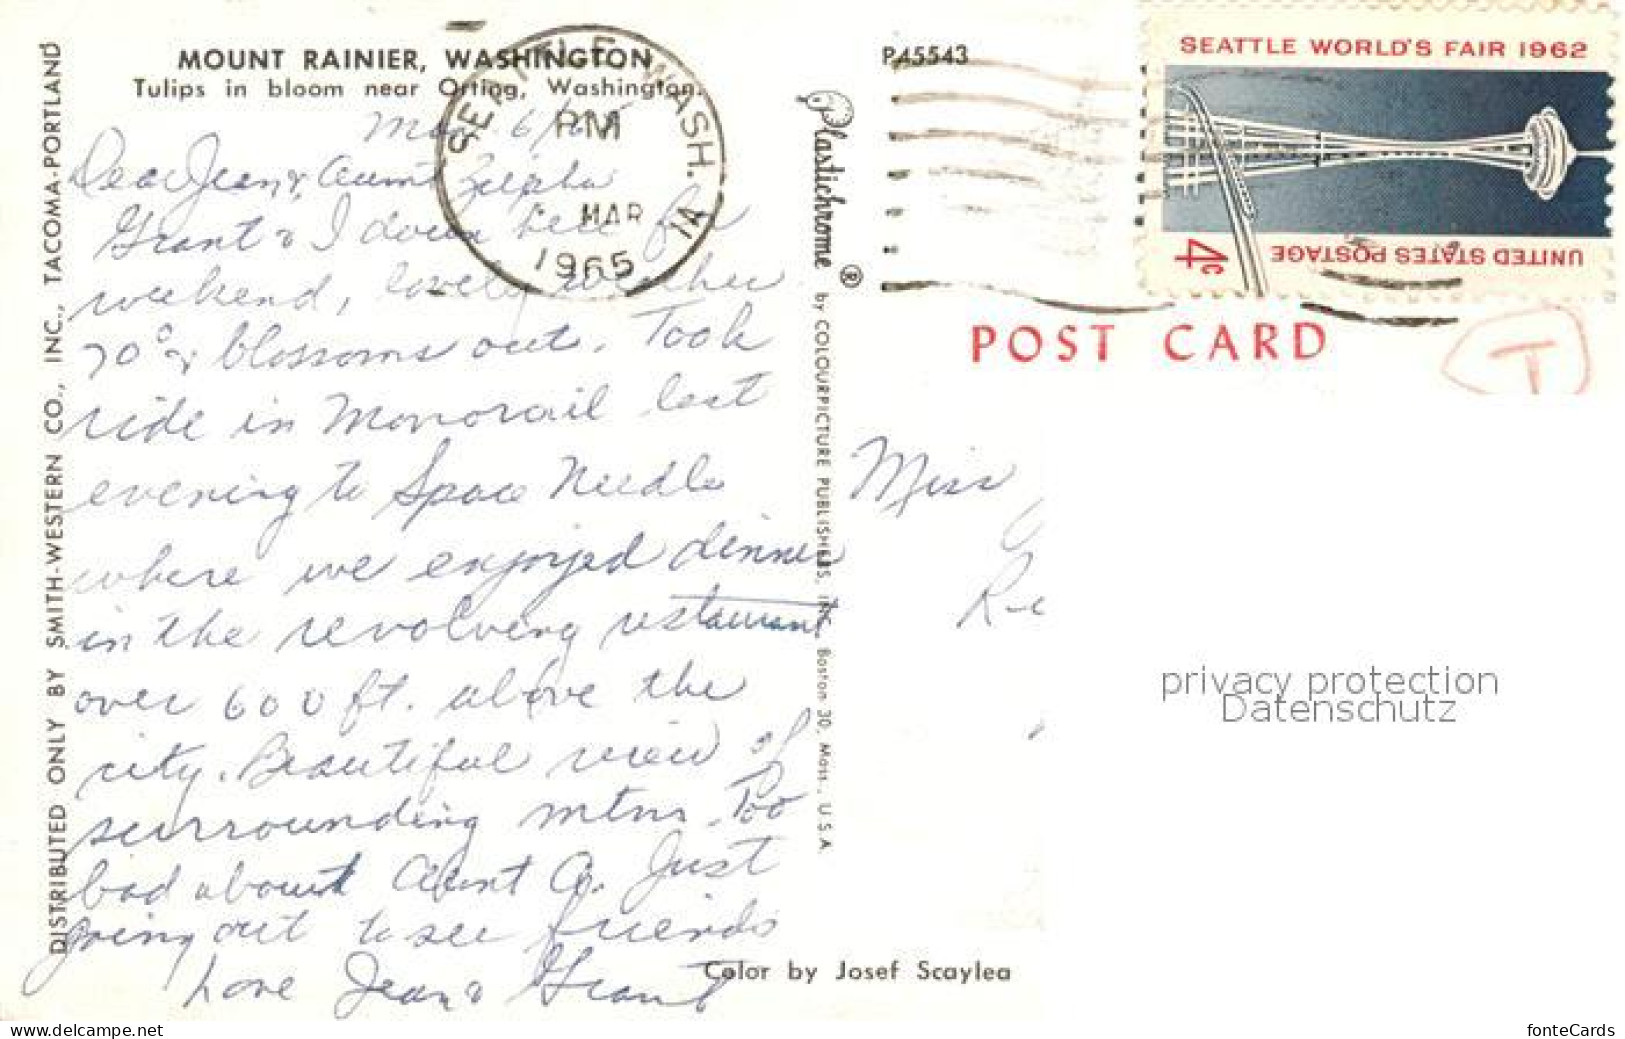 MOUNT RAINIER, WASHINGTON
Tulips in bloom near Orting, Washington.
Mar. 6/65
Dear Jean & Aunt Zilpha
Grant & I down here for
weekend, lovely weather
70° & blossoms out. Took
ride in Monorail last
evening to Space Needle
where we enjoyed dinner
in the revolving restaurant
over 600 ft. above the
city. Beautiful view of
surrounding mtns. Too
bad about Aunt C. Just
going out to see friends
Love Jean & Grant
DISTRIBUTED ONLY BY SMITH-WESTERN CO., INC., TACOMA-PORTLAND
SEATTLE WASH. 1A
PM
MAR
1965
Plastichrome ® by COLOURPICTURE PUBLISHERS, INC., Boston 30, Mass., U.S.A.
P45543
SEATTLE WORLD'S FAIR 1962
4c
UNITED STATES POSTAGE
POST CARD
T
Miss
privacy protection
Datenschutz
Color by Josef Scaylea
www.delcampe.net
fonteCards